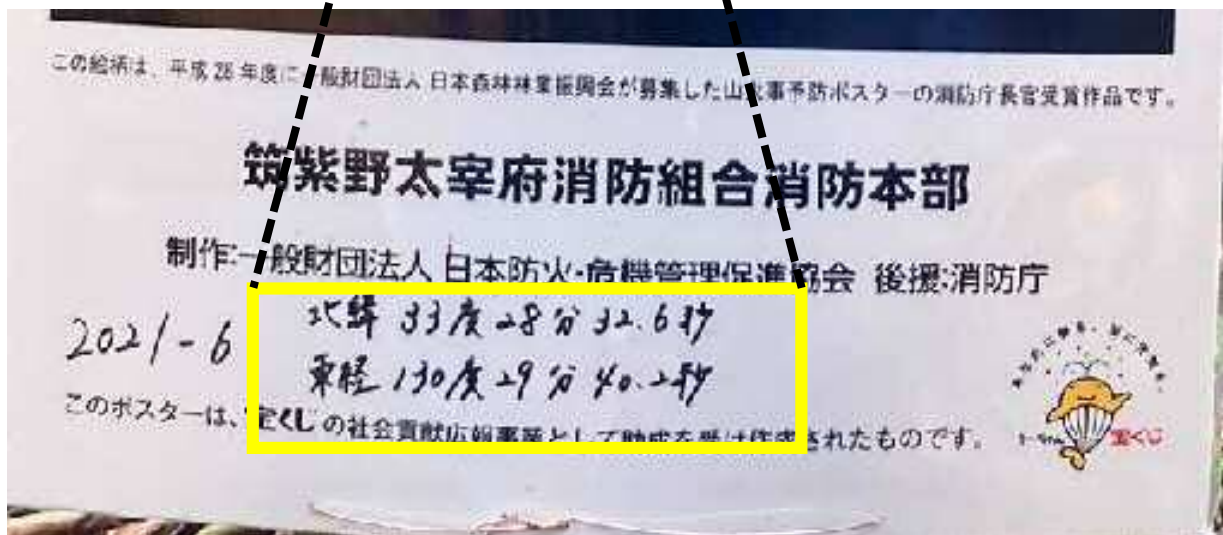 この絵柄は、平成28年度に一般財団法人 日本森林林業振興会が募集した山火事予防ポスターの消防庁長官受賞作品です。
筑紫野太宰府消防組合消防本部
制作:一般財団法人 日本防火・危機管理促進協会 後援:消防庁
北緯 33度28分32.6秒
2021-6
東経 130度29分40.2秒
このポスターは、宝くじの社会貢献広報事業として助成を受け作成されたものです。
宝くじ